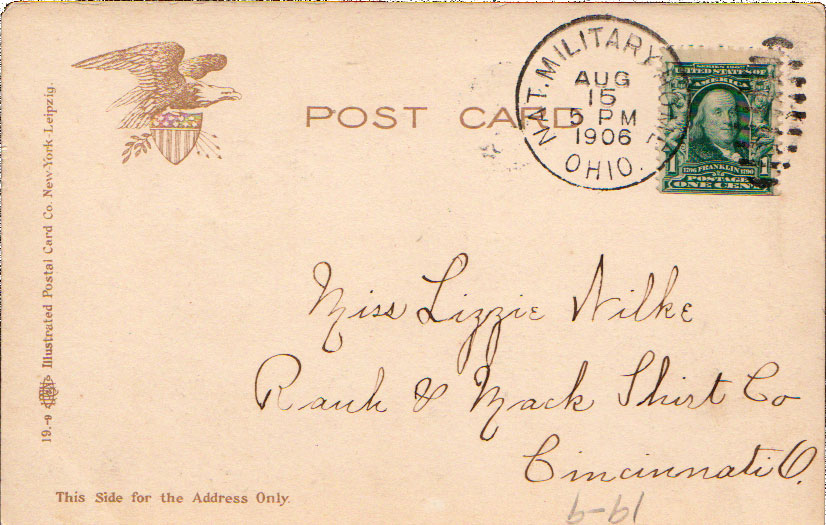 19.-9 Illustrated Postal Card Co. New-York-Leipzig.
POST CARD
NAT. MILITARY HOME
AUG
15
5 PM
1906
OHIO.
UNITED STATES OF
AMERICA
1 FRANKLIN 1
POSTAGE
ONE CENT
Miss Lizzie Wilke
Rauh & Mack Shirt Co
Cincinnati O.
This Side for the Address Only.
19-9